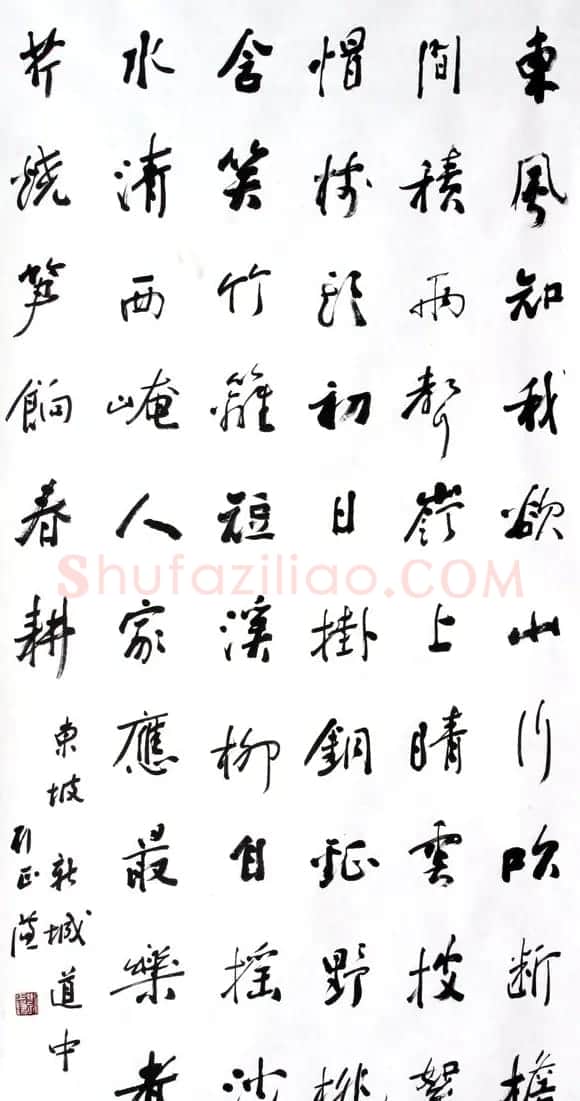 東風知我欲山行吹断檐
間積雨聲嶺上晴雲披絮
帽樹頭初日掛銅鉦野桃
含笑竹籬短溪柳自摇沙
水清西崦人家應最樂煮
芹燒筍餉春耕
東坡 新城道中
Shufaziliao.COM